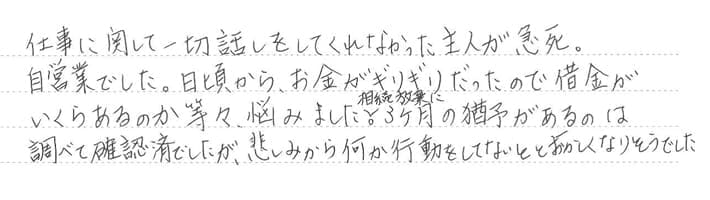 仕事に関して一切話しをしてくれなかった主人が急死。
自営業でした。日頃から、お金がギリギリだったので借金が
いくらあるのか等々、悩みました。相続放棄に3ヶ月の猶予があるのは
調べて確認済でしたが、悲しみから何か行動をしてないととおかしくなりそうでした